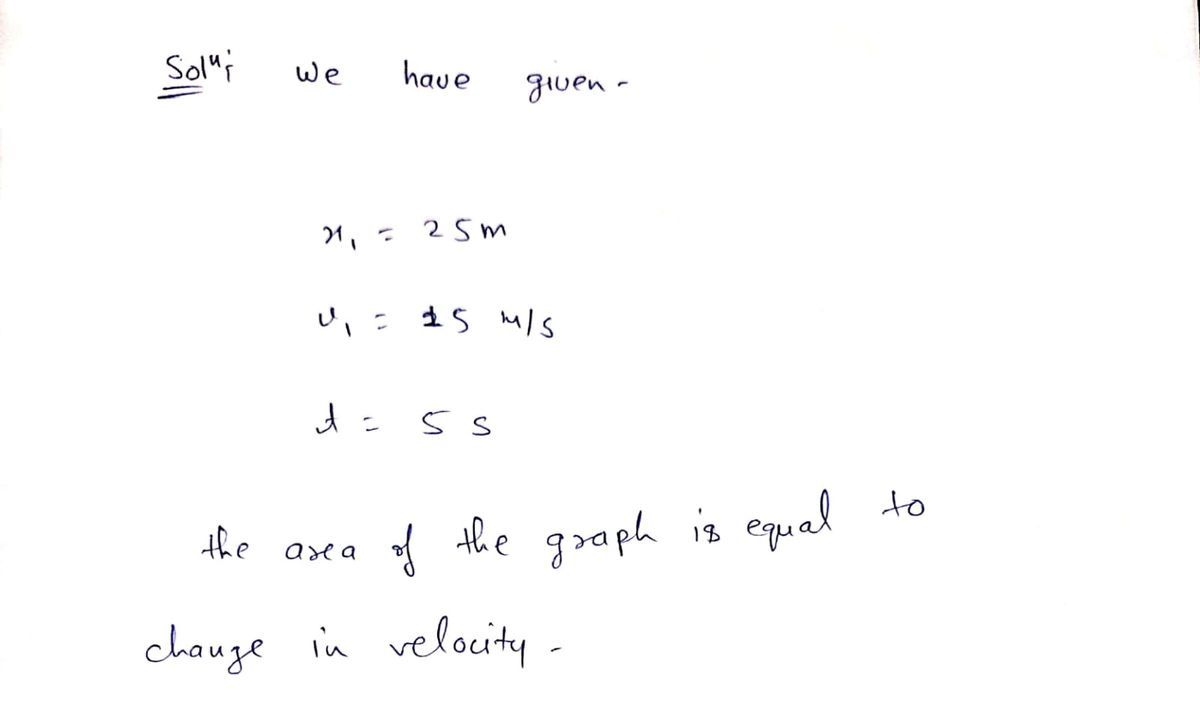 Solⁿ: we have given -
x₁ = 25m
v₁ = 15 m/s
t = 5 s
the area of the graph is equal to
change in velocity -